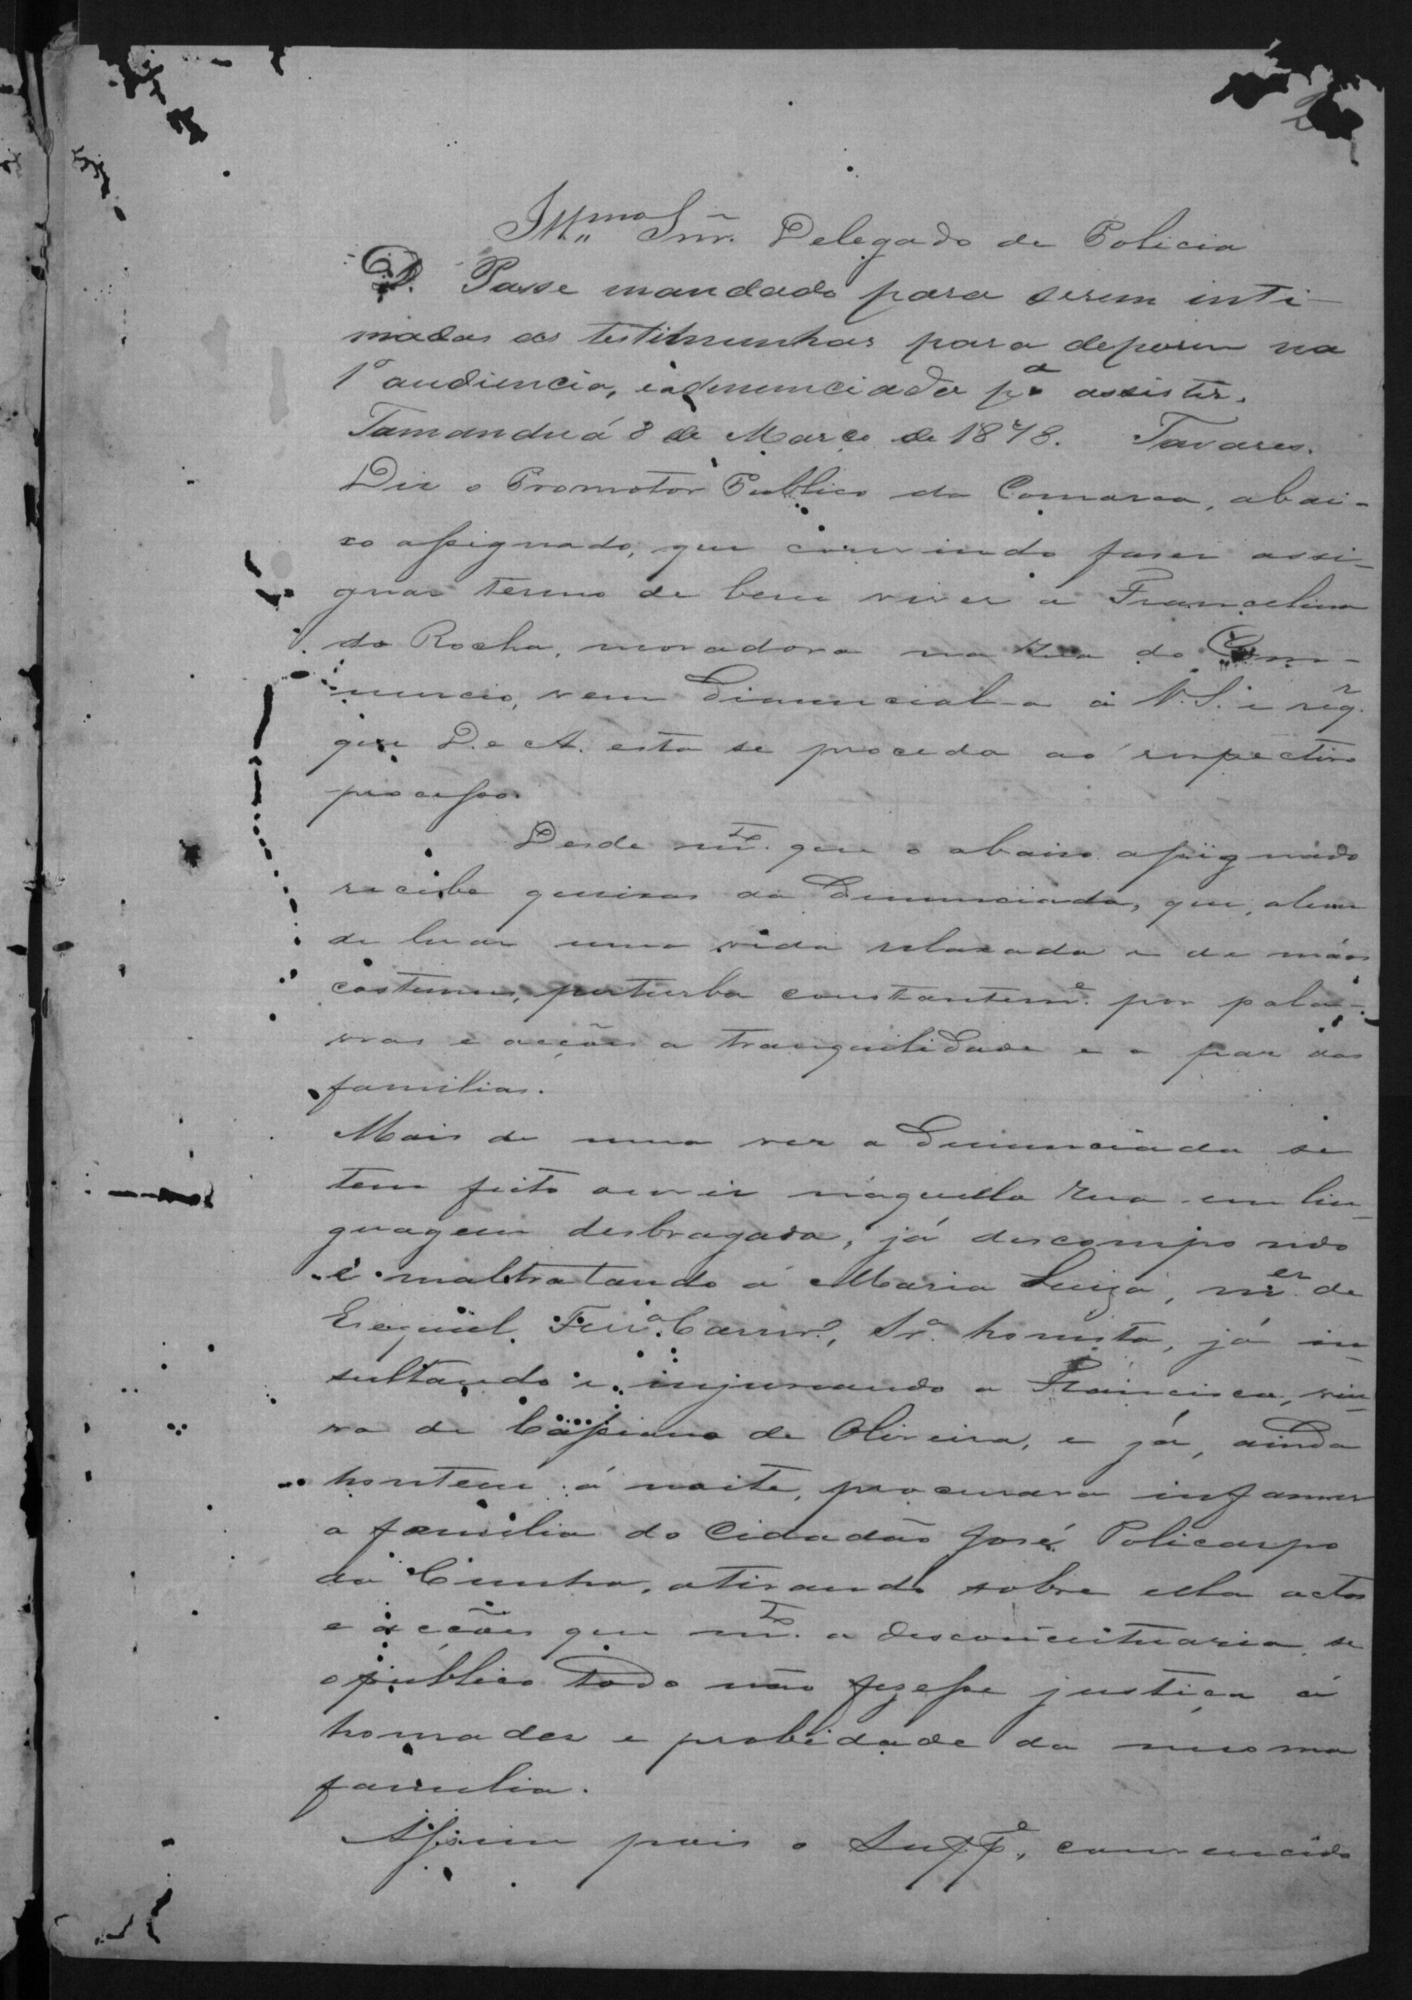 2
Illmo Snr. Delegado de Policia
D. Passe mandado para serem inti-
madas as testimunhas para deporem na
1ª audiencia, e a denunciada pª assistir.
Tamanduá 8 de Março de 1878. Tavares.
Diz o Promotor Publico da Comarca, abai-
xo assignado, que convindo faser assi-
gnar termo de bem viver a Francelina
da Rocha, moradora na Rua do Com-
mercio, vem denuncial-a á V.S. e reqr.
que D. e A. esta se proceda ao respectivo
processo.
Desde mto. que o abaixo assignado
recebe queixas da denunciada, que, alem
de levar uma vida relaxada e de máos
costumes, perturba constanteme. por pala-
vras e acções a tranquilidade e a paz das
familias.
Mais de uma vez a denunciada se
tem feito ouvir n'aquella rua em lin-
guagem desbragada, já descompondo
e maltratando á Maria Luiza, mer. de
Esequiel Fera. Carnro., Srª. honesta, já in-
sultando e injuriando a Francisca, viu-
va de Cassiano de Oliveira, e já, ainda
hontem á noite, procurara infamar
a familia do Cidadão José Policarpo
da Cunha, atirando sobre ella actos
e acções que mto. a desconceituaria, se
o publico todo não fizesse justiça á
honradez e probidade da mesma
familia.
Assim pois o Suppe., convencido